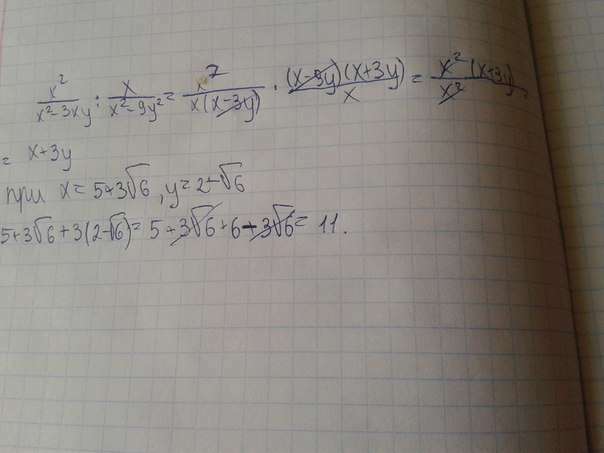 x²/(x²-3xy) : x/(x²-9y²) = x²/(x(x-3y)) · (x-3y)(x+3y)/x = x²(x+3y)/x² =
= x+3y
при x = 5+3√6, y = 2-√6
5+3√6+3(2-√6) = 5+3√6+6-3√6 = 11.